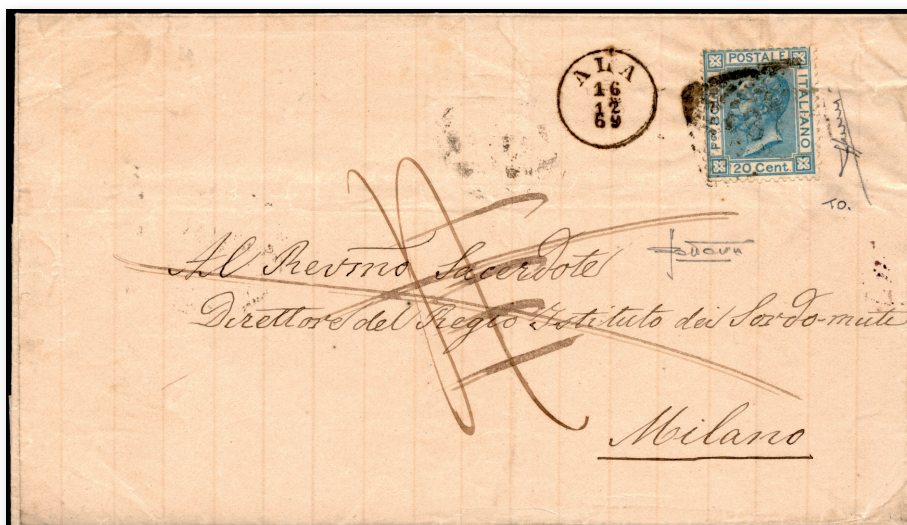 ALA
16
12
69
POSTALE
ITALIANO
20 Cent.
TO.
Al Revmo Sacerdote
Direttore del Regio Istituto dei Sordo-muti
Milano